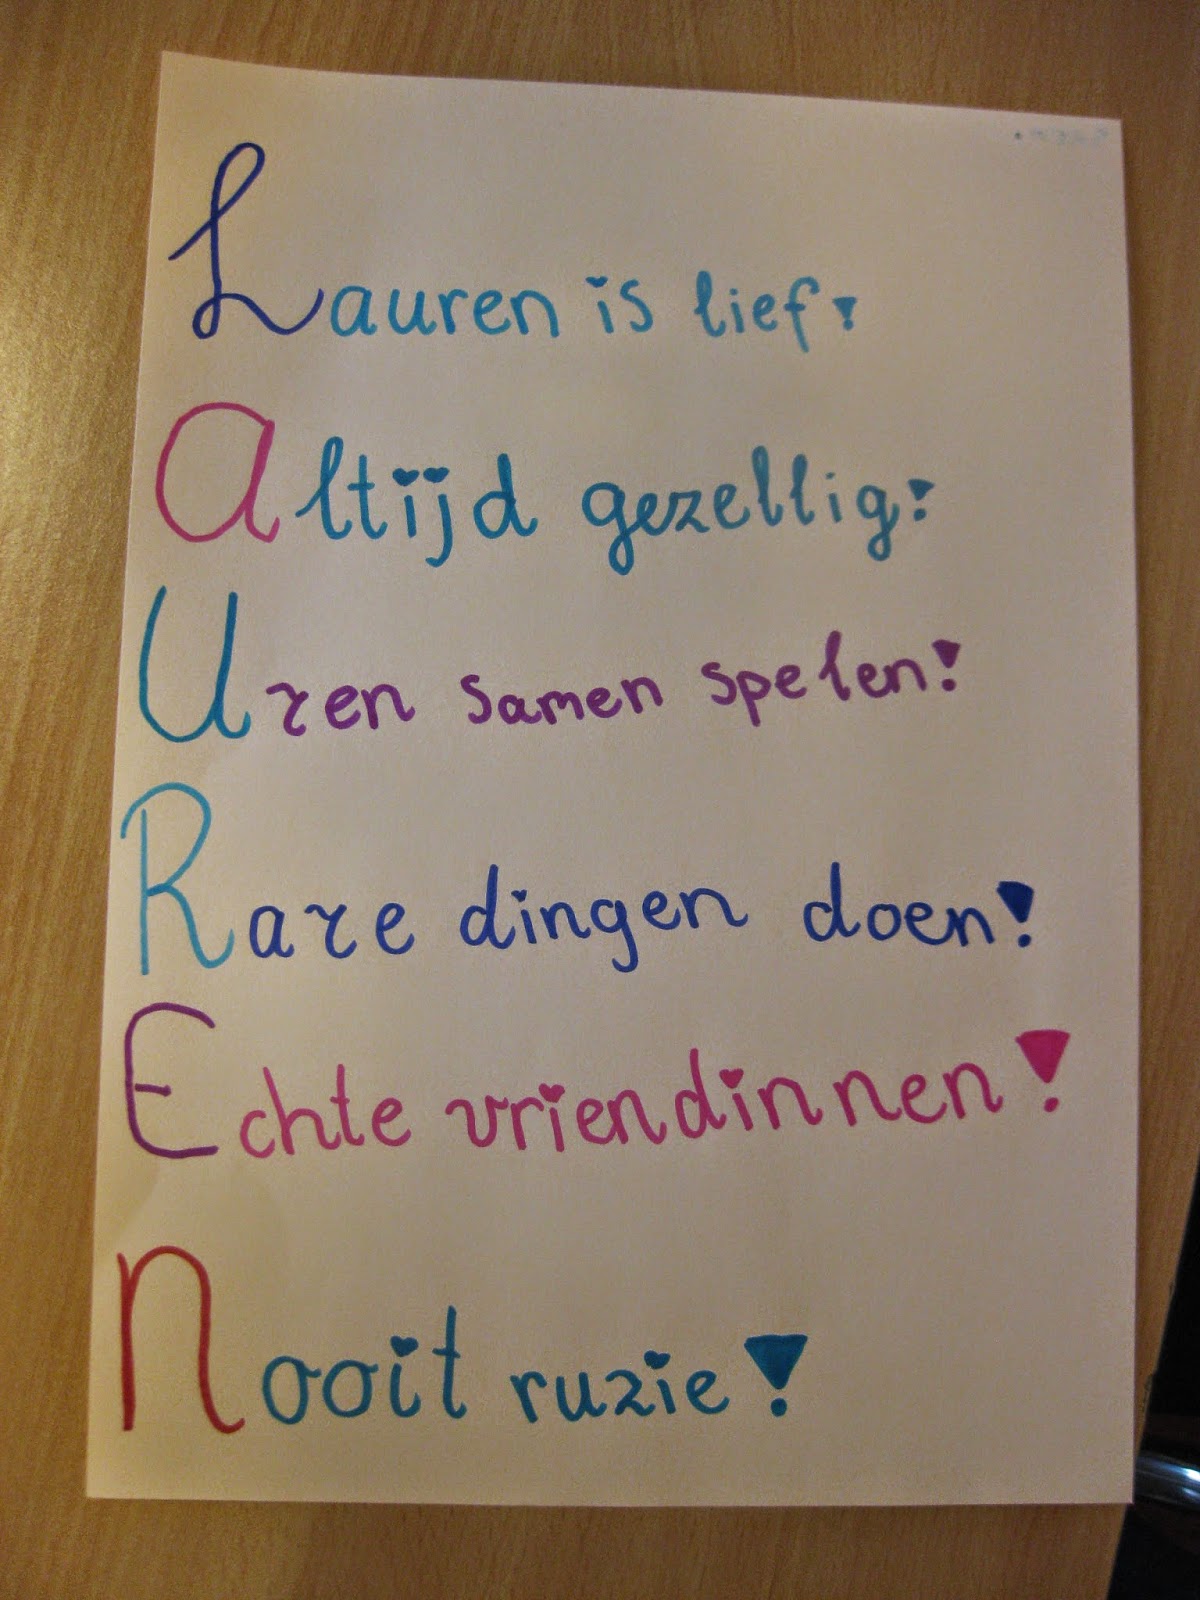 Lauren is lief!
Altijd gezellig!
Uren samen spelen!
Rare dingen doen!
Echte vriendinnen!
Nooit ruzie!